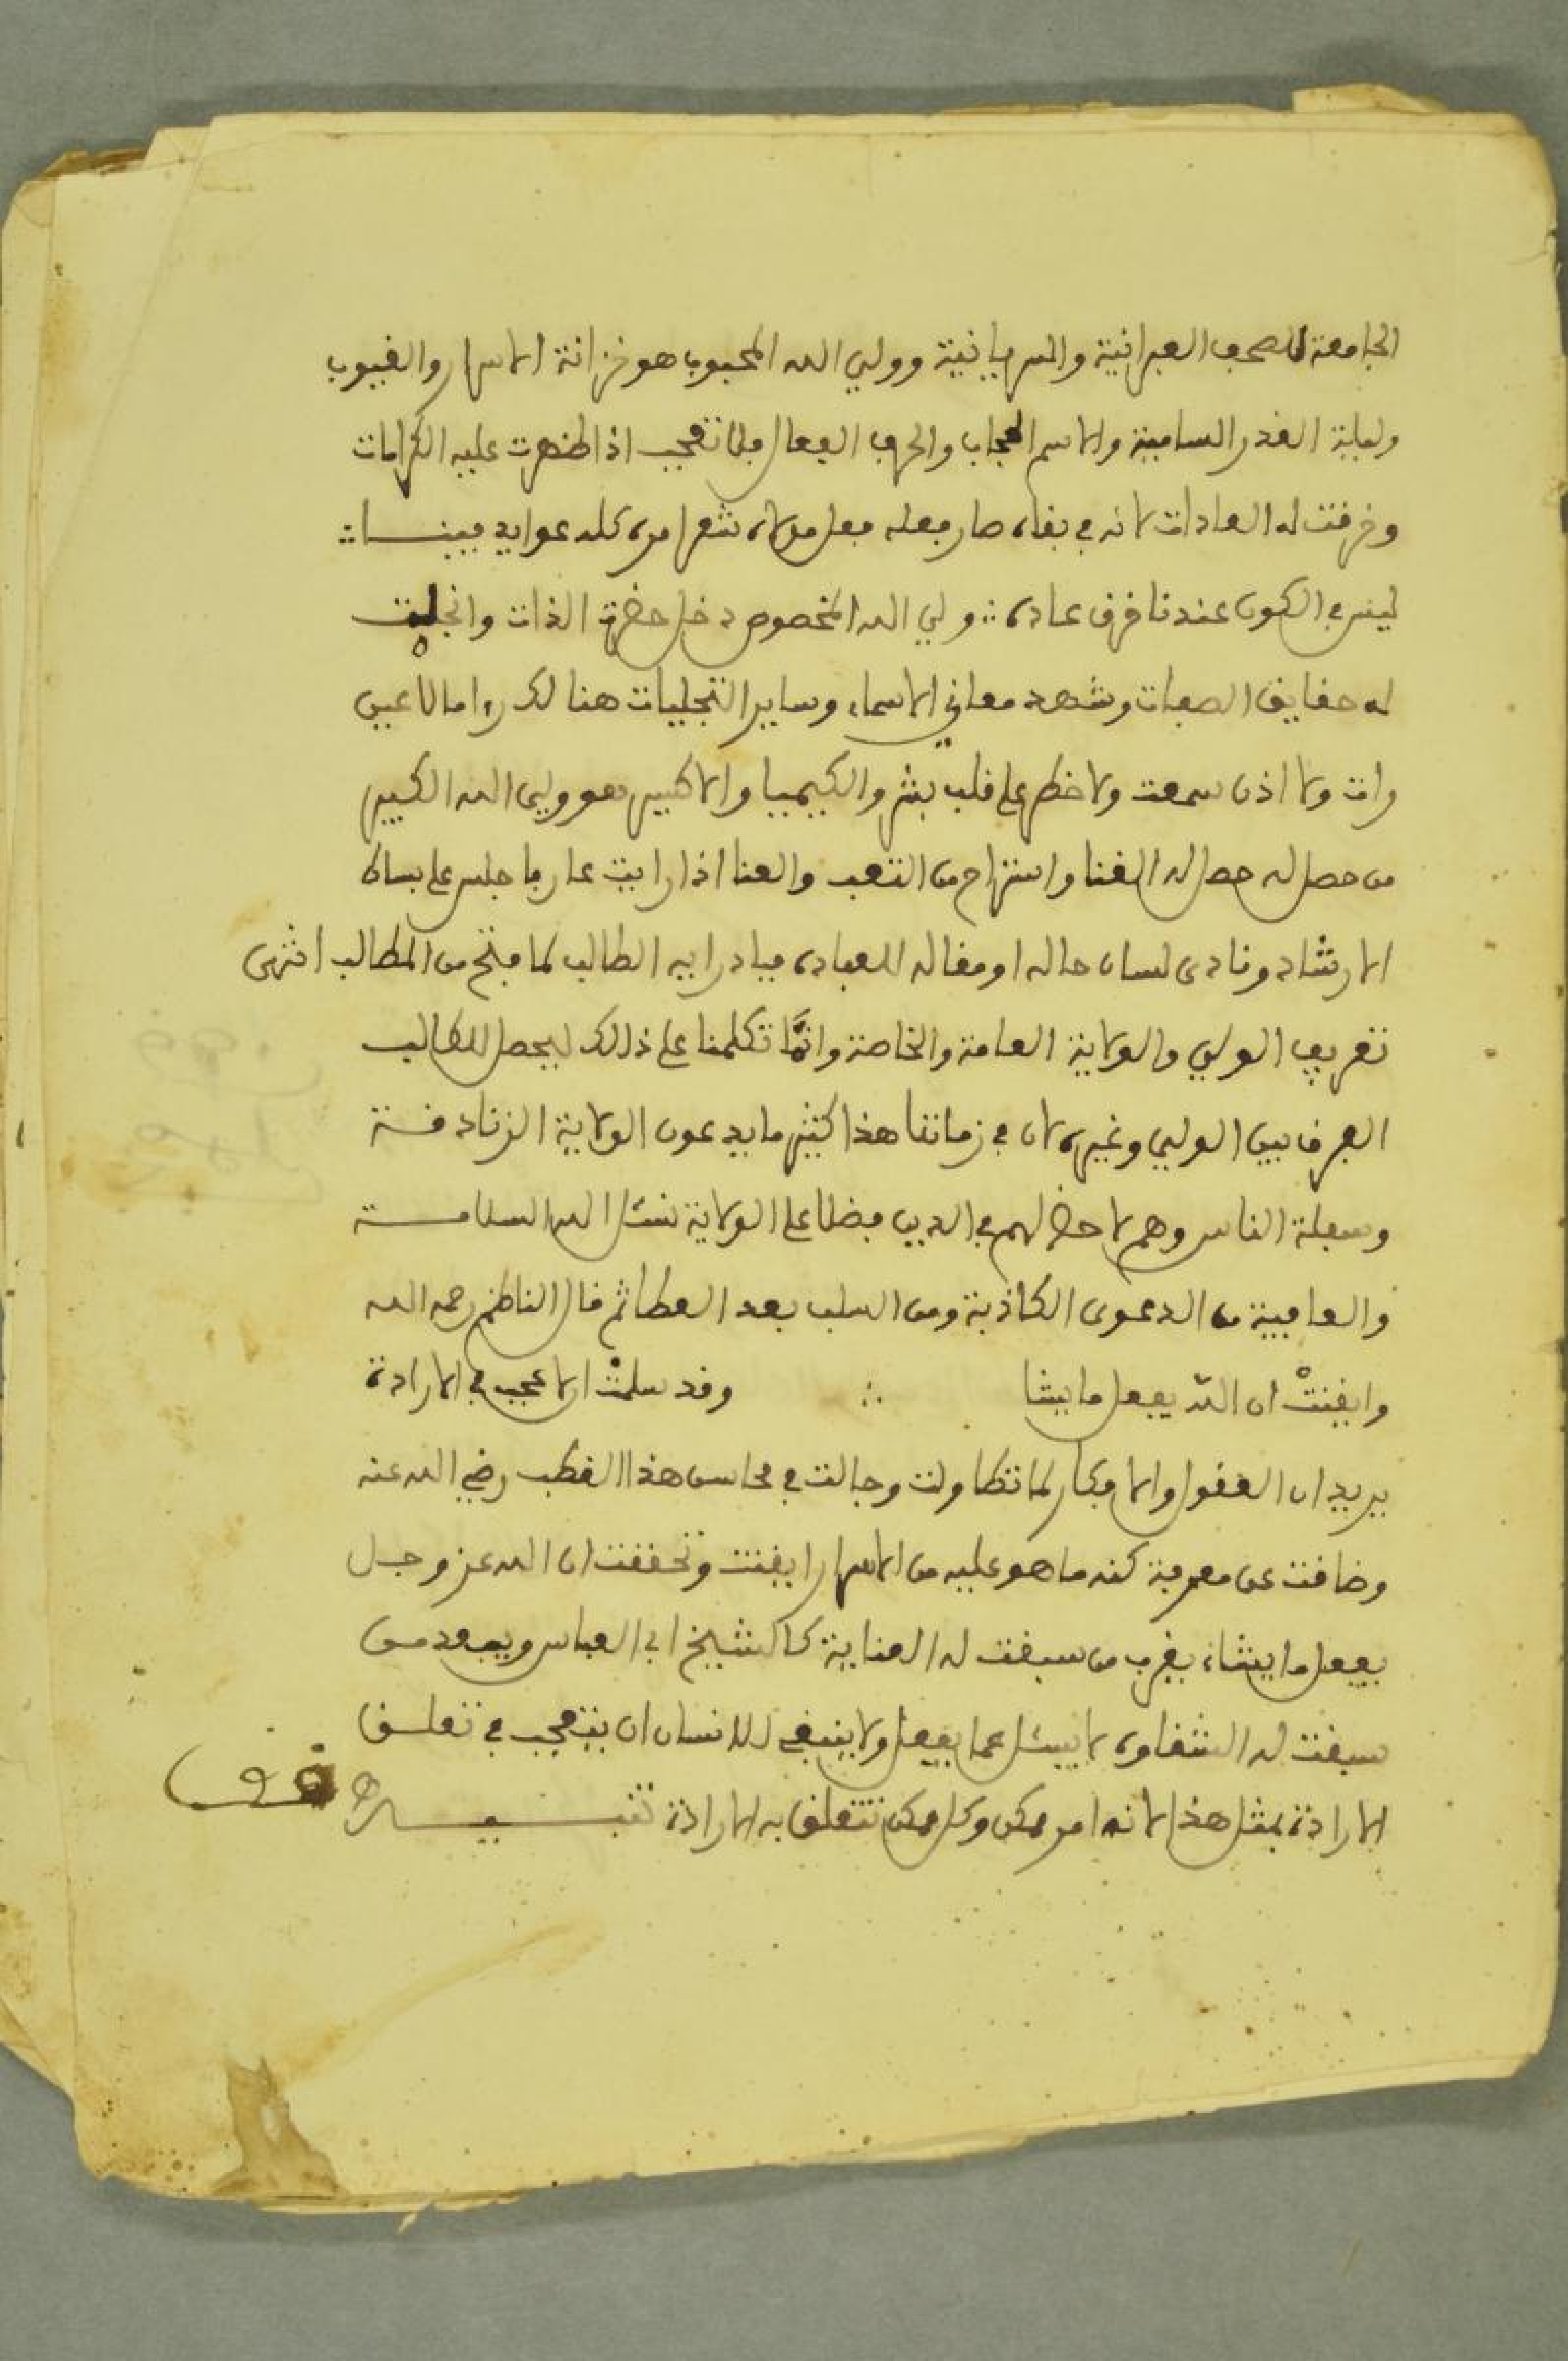 الجامعة للصحف العبرانية والسريانية وولي الله المحبوب هو خزانة الاسرار والغيوب
وليلة القدر السامية والاسم المجاب والحرف الفعال فلا تعجب اذا ظهرت عليه الكرامات
وخرقت له العادات لانه في بقاه صار فعله فعل مولاه شعر امره كله عوايد فينا ∴
ليس في الكون عندنا خرق عاده ∴ ولي الله المخصوص دخل حضرة الذات وانجلت
له حقايق الصفات وشهد معاني الاسماء وساير التجليات هنالك راء ما لا عين
رات ولا اذن سمعت ولا خطر على قلب بشر والكيميا والاكسير هو ولي الله الكبير
من حصل له حصل له الغنا واستراح من التعب والعنا اذا رايت عارفا جلس على بساط
الارشاد ونادى لسان حاله او مقاله للعباده فبادر ايه الطالب لما فتح من المطالب انتهى
تعريف الولي والولاية العامة والخاصة وانما تكلمنا على ذلك ليحصل للطالب
الفرق بين الولي وغيره لان في زماننا هذا كثير ما يدعون الولاية الزنادقة
وسفلة الناس وهم لا حظ لهم في الدين فضلا على الولاية نسئل الله السلامة
والعافية من الدعوى الكاذبة ومن السلب بعد العطا ثم قال الناظم رحمه الله
وايقنت ان الله يفعل ما يشا ∴ وقد سلمت ان لا عجب في الارادة
يريد ان العقول والافكار لما تطاولت وجالت في محاسن هذا القطب رضي الله عنه
وضاقت عن معرفة كنه ما هو عليه من الاسرار ايقنت وتحققت ان الله عز وجل
يفعل ما يشاء يقرب من سبقت له العناية كالشيخ ابي العباس ويبعد من
سبقت له الشقاوه لا يسئل عما يفعل ولا ينبغي للانسان ان يتعجب في تعلق
الارادة بمثل هذا لانه امر ممكن وكل ممكن تتعلق به الارادة تنبيه